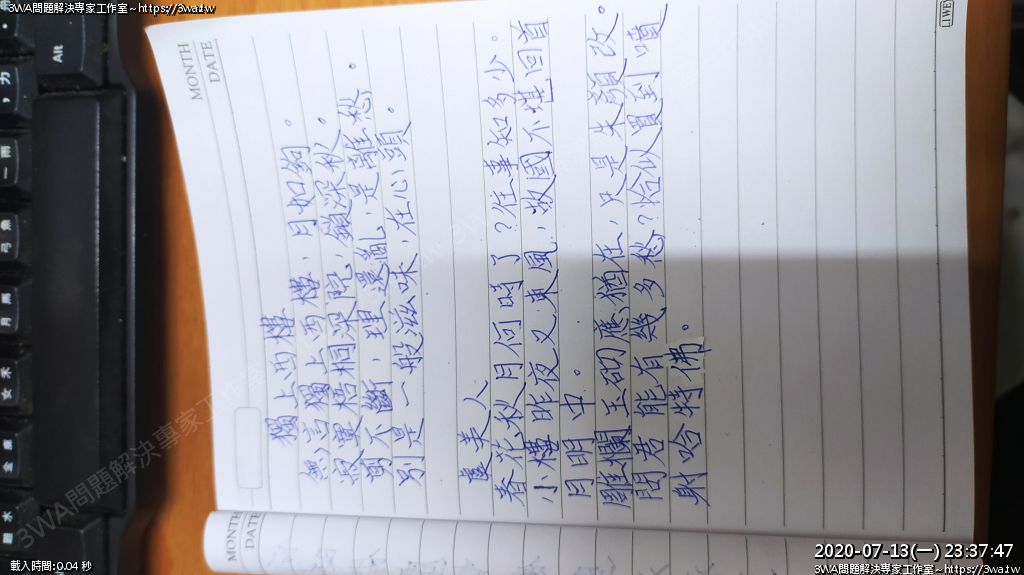 3WA問題解決專家工作室~https://3wa.tw
MONTH
DATE
獨上西樓
無言獨上西樓,月如鉤。
寂寞梧桐深院,鎖深秋。
剪不斷,理還亂,是離愁。
別是一般滋味,在心頭。
虞美人
春花秋月何時了?往事知多少。
小樓昨夜又東風,故國不堪回首
月明中。
雕欄玉砌應猶在,只是朱顏改。
問君能有幾多愁?恰似買到噴
射哈特佛。
MONTH
DATE
Alt
3WA問題解決專家工作室
載入時間:0.04 秒
2020-07-13(一) 23:37:47
3WA問題解決專家工作室~https://3wa.tw